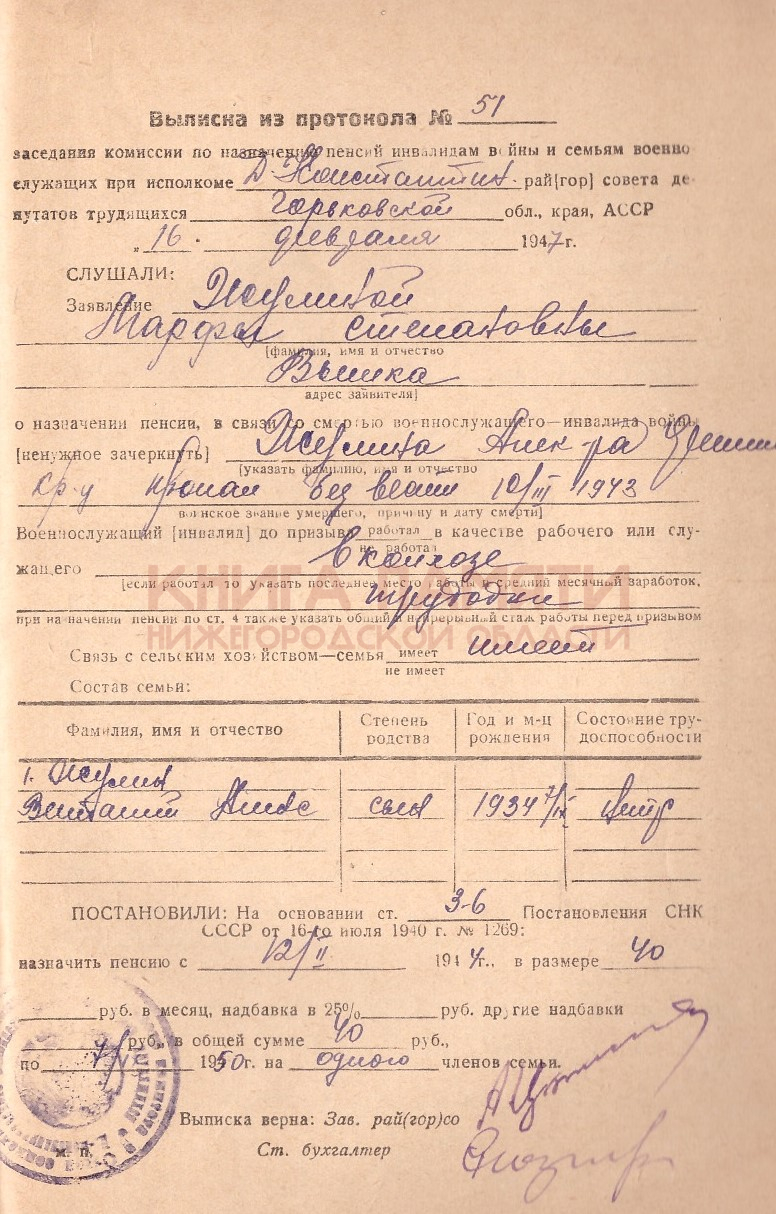 Выписка из протокола № 51
заседания комиссии по назначению пенсий инвалидам войны и семьям военно
служащих при исполкоме Д-Константин. рай[гор] совета де
путатов трудящихся Горьковской обл., края, АССР
„16. февраля 1947г.
СЛУШАЛИ:
Заявление
Марфы Степановны
[фамилия, имя и отчество
адрес заявителя]
о назначении пенсии, в связи со смертью военнослужащего—инвалида войны
[ненужное зачеркнуть] Алек-ра
[указать фамилию, имя и отчество
кр-ц пропал без вести 10/III 1943
воинское звание умершего, причину и дату смерти]
Военнослужащий [инвалид] до призыва работал в качестве рабочего или слу-
не работал
жащего в колхозе
[если работал то указать последнее место работы и средний месячный заработок,
трудодни
при назначении пенсии по ст. 4 также указать общий и непрерывный стаж работы перед призывом
КНИГА ПАМЯТИ
НИЖЕГОРОДСКОЙ ОБЛАСТИ
Связь с сельским хозяйством—семья имеет имеет
не имеет
Состав семьи:
Фамилия, имя и отчество Степень родства Год и м-ц рождения Состояние тру-доспособности
1.
сын 1934 7/IX
ПОСТАНОВИЛИ: На основании ст. 3-6 Постановления СНК
СССР от 16-го июля 1940 г. № 1269:
назначить пенсию с 12/II 1947г., в размере 40
руб. в месяц, надбавка в 25% руб. другие надбавки
руб., в общей сумме 40 руб.,
по 1950г. на одного членов семьи.
Выписка верна: Зав. рай(гор)со
м. п. Ст. бухгалтер